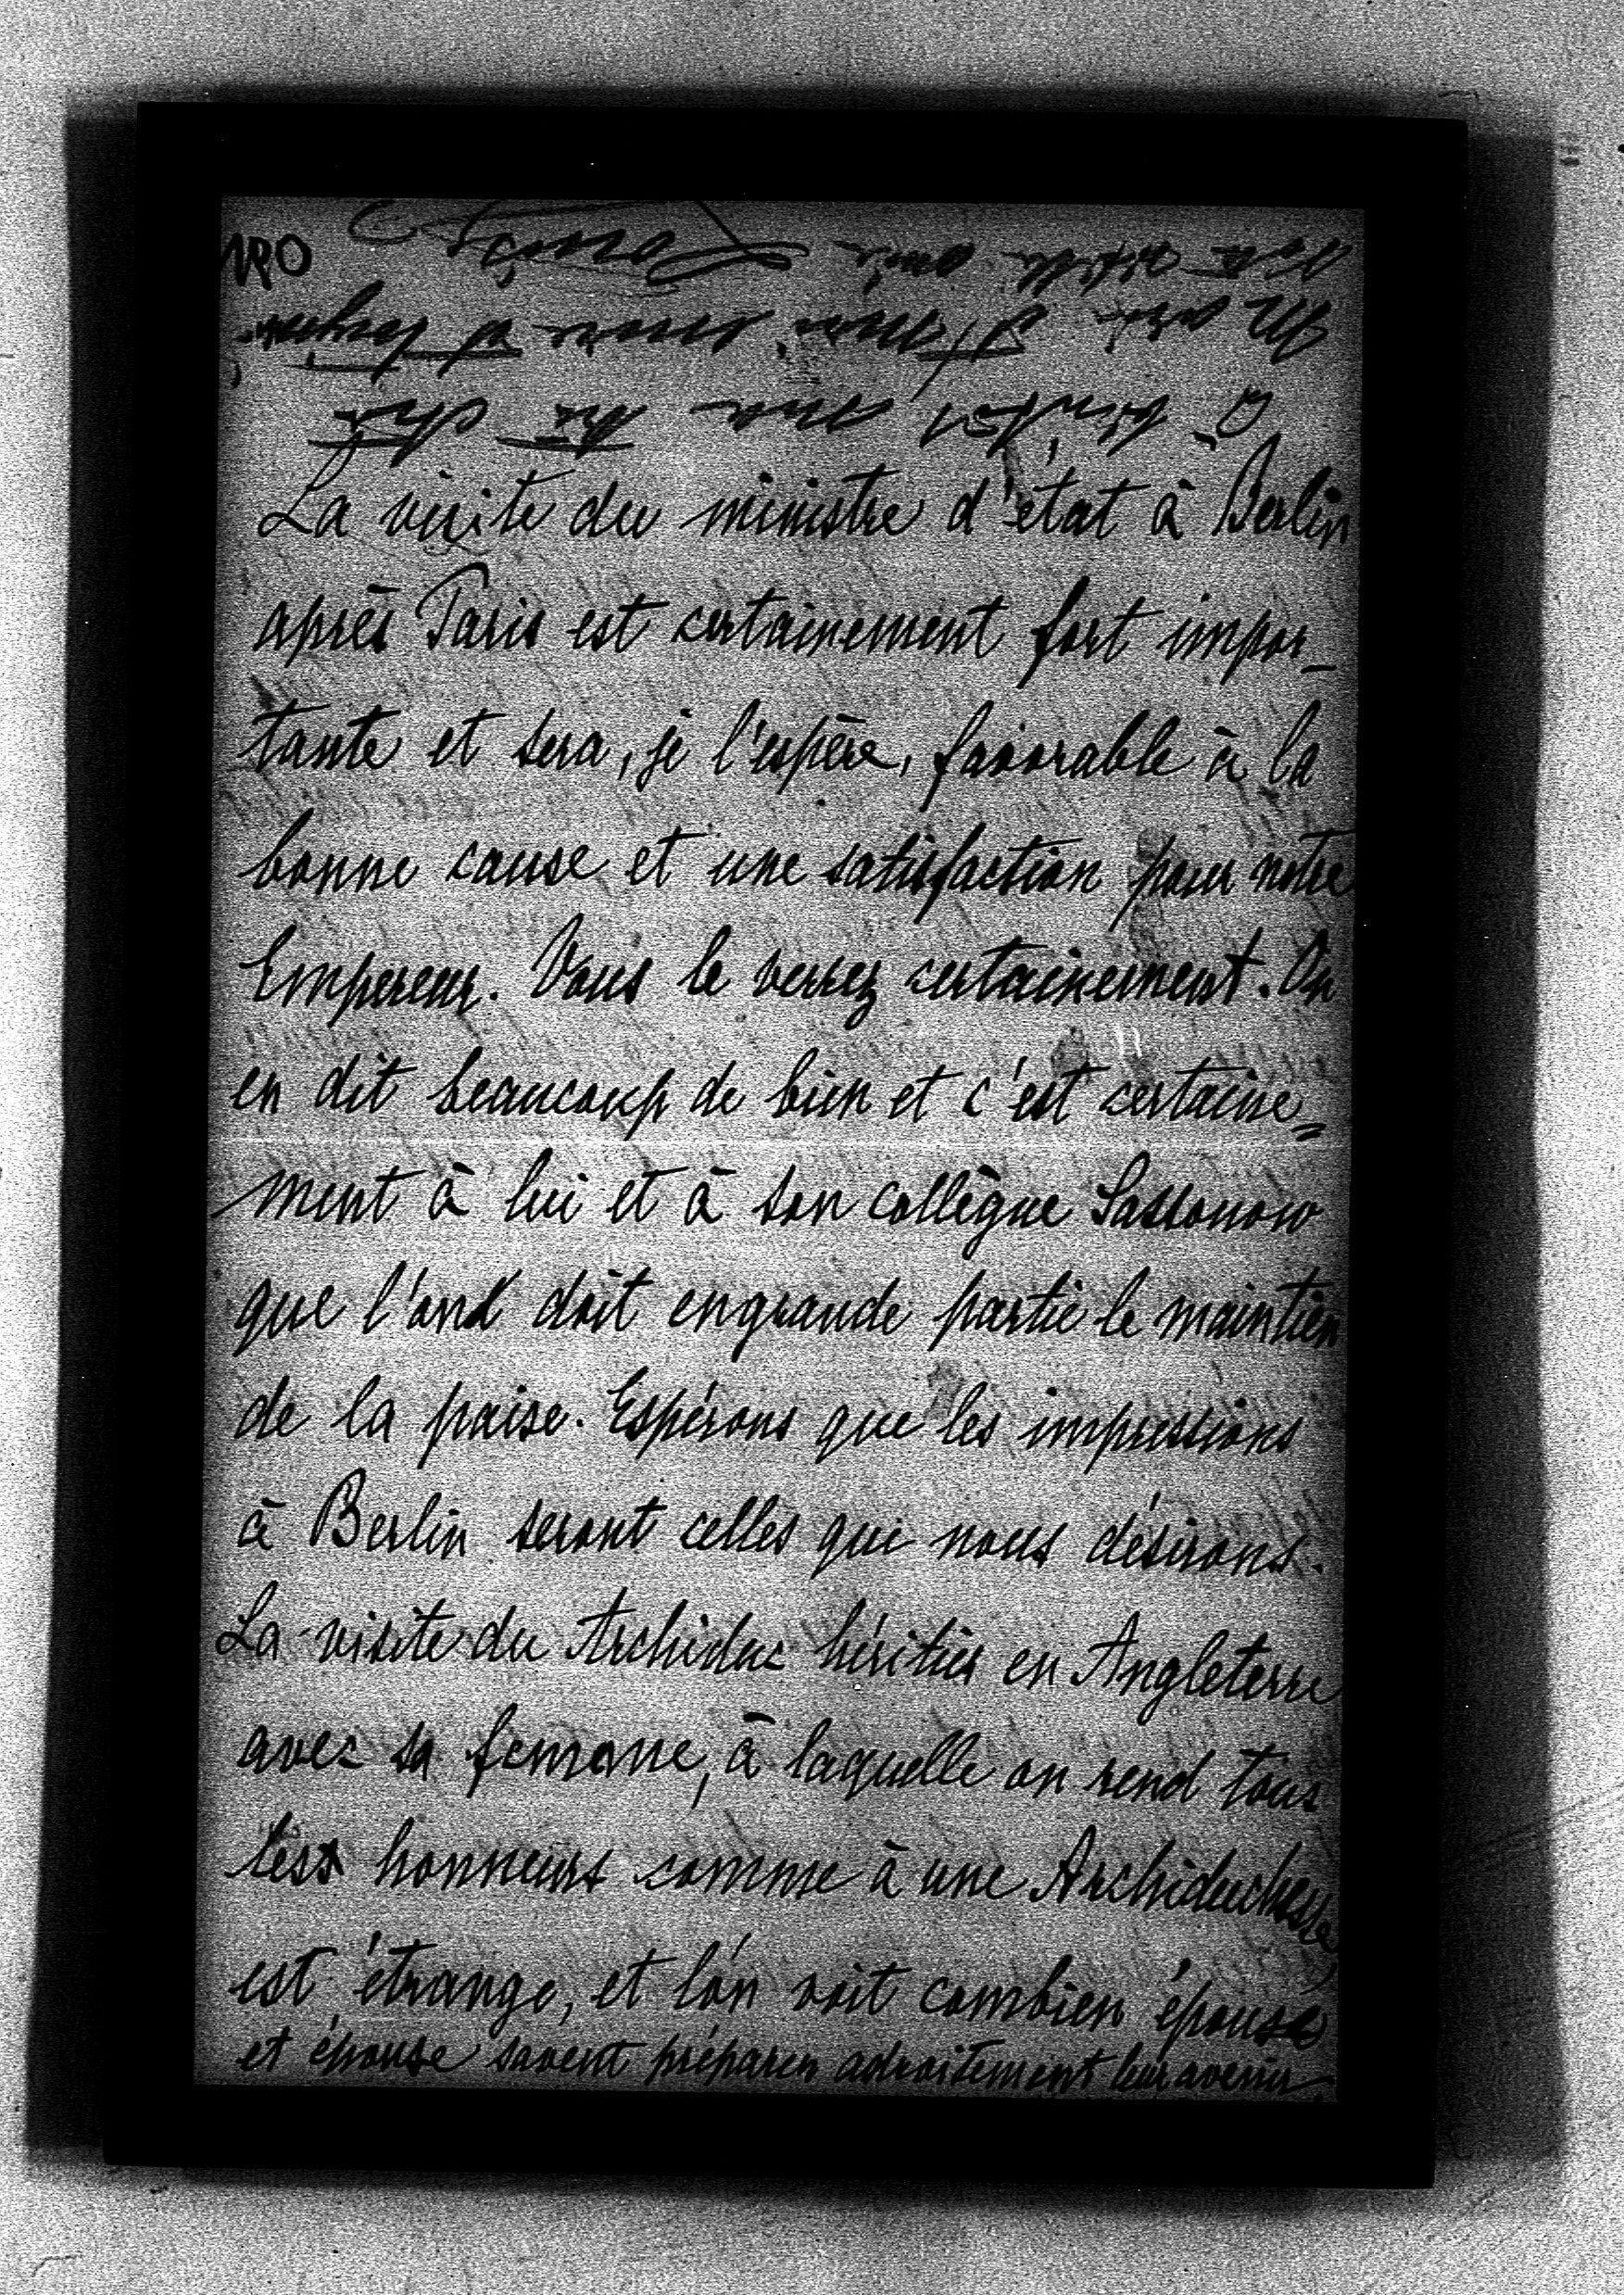 La visite du ministre d'état à Berlin
après Paris est certainement fort impor_
tante et sera, je l'espère, favorable à la
bonne cause et une satisfaction pour notre
Empereur. Vous le verrez certainement. On
en dit beaucoup de bien et c'est certaine=
ment à lui et à son collègue Sassonow
que l'on doit en grande partie le maintien
de la paise. Espérons que les impressions
à Berlin seront celles que nous désirons.
La visite du Archiduc héritier en Angleterre
avec sa femme, à laquelle on rend tous
les honneurs comme à une Archiduchesse
est étrange, et l'on voit combien épouse
et épouse savent préparer adroitement leur avenir.
A bientôt mon très cher